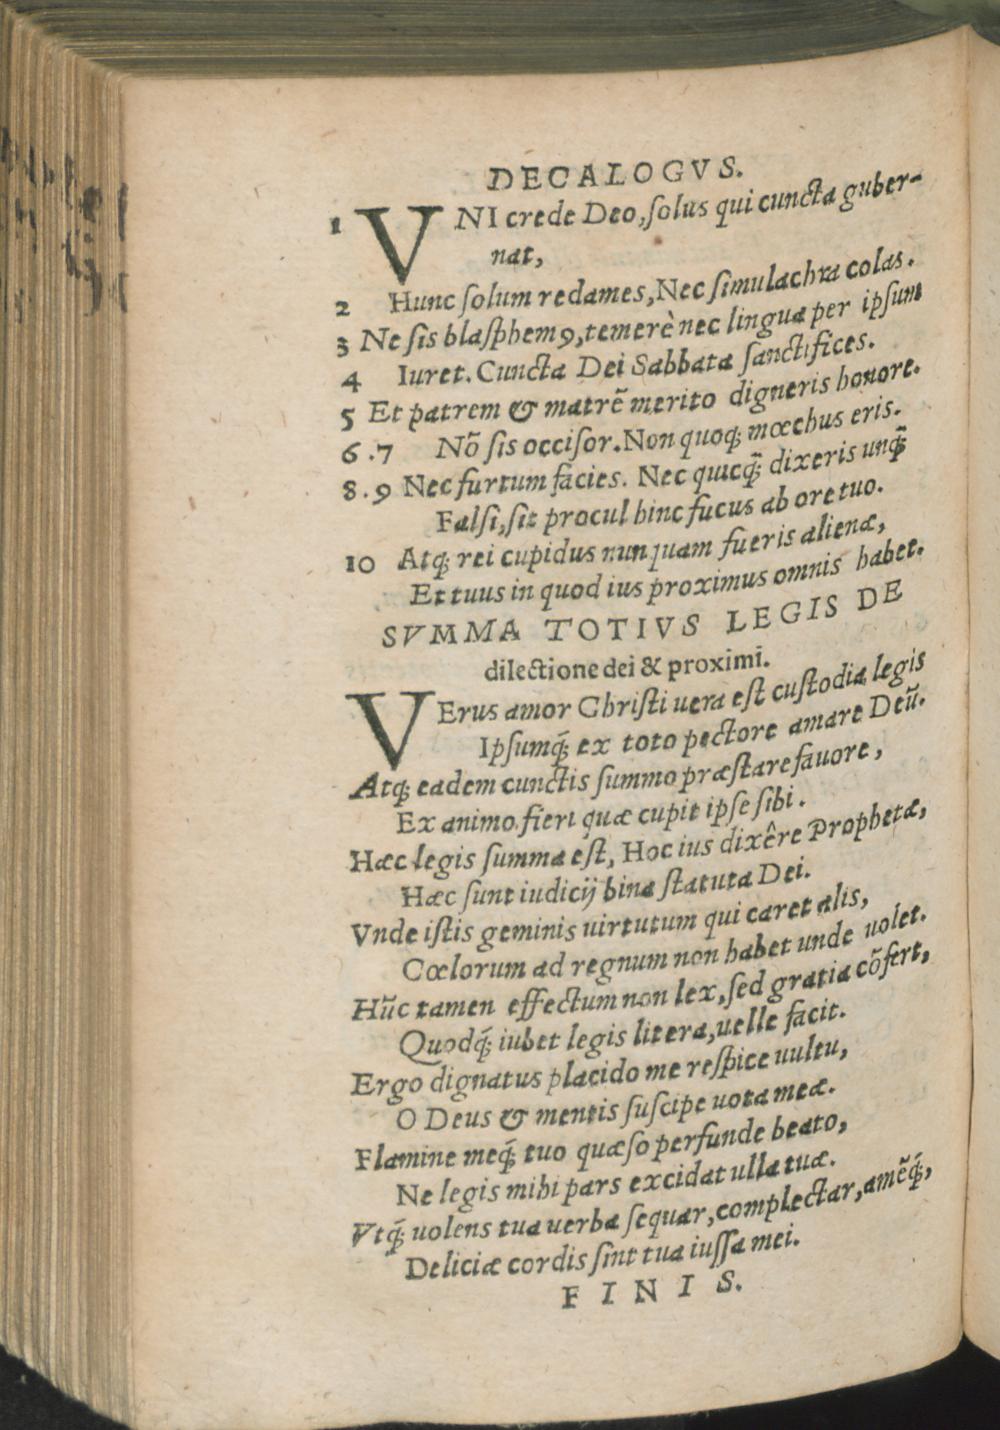 DECALOGVS.
1 VNI crede Deo,ſolus qui cuncta guber-
nat,
2 Hunc ſolum redames,Nec ſimulachra colas.
3 Ne ſis blaſphemꝰ,temerè nec lingua per ipſum
4 Iuret.Cuncta Dei Sabbata ſanctifices.
5 Et patrem & matrẽ merito digneris honore.
6.7 Nõ ſis occiſor.Non quoq; mœchus eris.
8.9 Nec furtum facies. Nec quicq̃; dixeris unq̃;
Falſi,ſit procul hinc fucus ab ore tuo.
10 Atq; rei cupidus nunquam fueris alienæ,
Et tuus in quod ius proximus omnis habet.
SVMMA TOTIVS LEGIS DE
dilectione dei & proximi.
VErus amor Chriſti uera eſt cuſtodia legis
Ipſumq́; ex toto pectore amare Deũ.
Atq; eadem cunctis ſummo præſtare fauore,
Ex animo fieri quæ cupit ipſe ſibi.
Hæc legis ſumma eſt, Hoc ius dixêre Prophetæ,
Hæc ſunt iudicij bina ſtatuta Dei.
Vnde iſtis geminis uirtutum qui caret alis,
Cœlorum ad regnum non habet unde uolet.
Hũc tamen effectum non lex,ſed gratia cõfert,
Quodq́; iubet legis litera,uelle facit.
Ergo dignatus placido me reſpice uultu,
O Deus & mentis ſuſcipe uota meæ.
Flamine meq́; tuo quæſo perfunde beato,
Ne legis mihi pars excidat ulla tuæ.
Vtq́; uolens tua uerba ſequar,complectar,amẽq́;,
Deliciæ cordis ſint tua iuſſa mei.
FINIS.